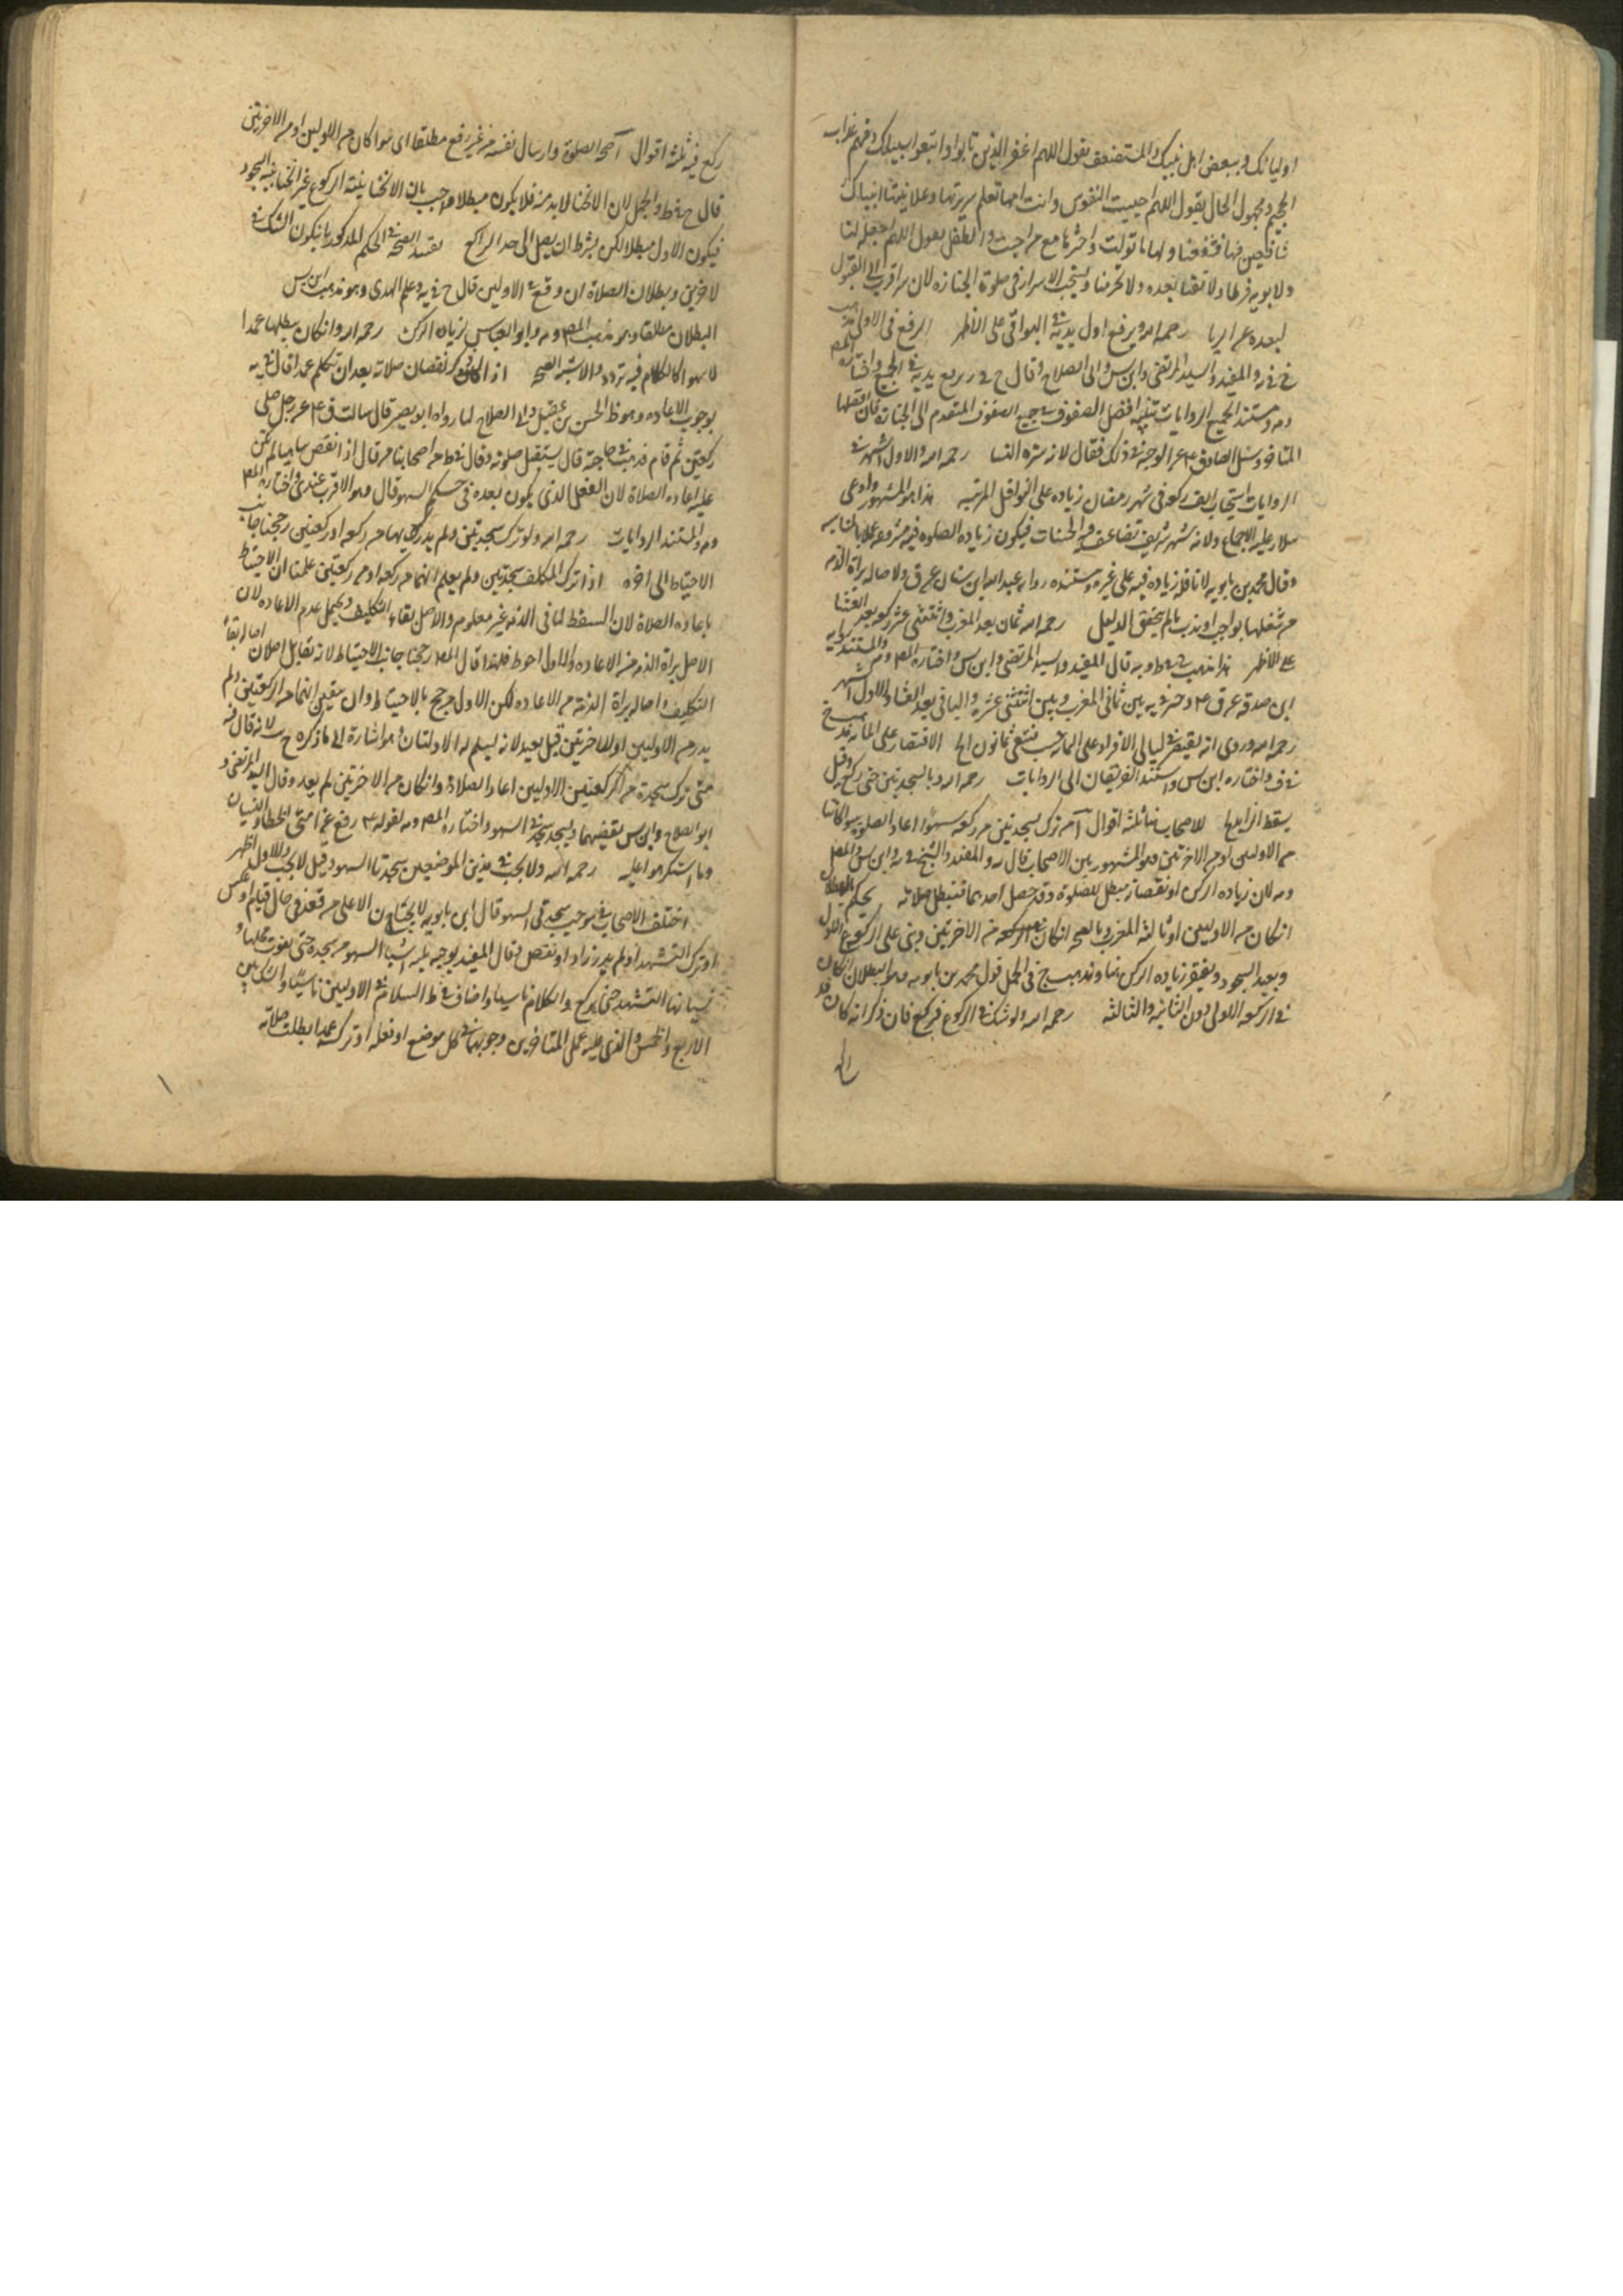 اوليائك وببعض اهل نبيك والمستضعف يقول اللهم اغفر للذين تابوا واتبعوا سبيلك وقهم عذاب
الجحيم ومجهول الحال يقول اللهم احييت النفوس وانت امتها تعلم سريرتها وعلانيتها اتيناك
شافعين فيها فشفعنا ولها ما تولت واحشرها مع من احبت والطفل يقول اللهم اجعله لنا
ولابويه فرطا ولا تفتنا بعده ولا تحرمنا ويستحب الاسرار في صلوة الجنازه لان سر اقرب الى القبول
لبعده عن الريا رحمه الله ويرفع اول يديه في البواقي على الاظهر الرفع في الاولى
والمفيد والسيد المرتضى وابن س وابي الصلاح وقال ح في يرفع يديه في الجميع واختاره المص
ومستند الجميع الروايات تنبيه افضل الصفوف في جميع الصفوف المتقدم الى الجنازة فان افضلها
المتاخر وسئل الصادق ع عن الوجه في ذلك فقال لانه ستره النسا رحمه الله والاول اشهر في
الروايات استحباب الف ركعة في شهر رمضان زياده على النوافل المرتبه هذا هو المشهور وادعى
سلار عليه الاجماع ولانه شهر شريف تضاعف فيه الحسنات فيكون زياده الصلوه فيه مشروعه
وقال محمد بن بابويه لا نافله زياده فيه على غيره ومستنده روايه عبد الله ابن سنان عن ق ولاصاله براة الذمه
من شغلها بواجب او ندب ما لم يتحقق الدليل رحمه الله ثمان بعد المغرب واثنتي عشر ركعه بعد العشا
على الاظهر هذا مذهب في ط وبه قال المفيد والسيد المرتضى وابن س واختاره المص والمستند روايه
ابن صدقه عن ق ع وخير في يه بين ثماني المغرب وبين اثنتي عشره والباقي بعد العشاء والاول اشهر
رحمه الله وروى انه يقتصر في ليالي الافراد على المائه حسب فتبقى ثمانون الخ الاقتصار على المائه مذهب
في ف واختاره ابن س واستند الفريقان الى الروايات رحمه الله وبالسجدتين حتى ركع وقيل
يسقط الزايد للاصحاب هنا ثلثه اقوال آ من ترك سجدتين من ركعه سهوا اعاد الصلوة سوا كانتا
من الاوليين او من الاخرتين وهو المشهور بين الاصحاب قال به المفيد والشيخ في يه وابن س والمص
ومه لان زياده الركن او نقصانه مبطل للصلوة وقد حصل احدهما فتبطل صلاته يحكم بالبطلان
ان كان من الاوليين او ثالثة المغرب وبالصحه ان كان من الاخرتين وبنى على الركوع الاول
ويعيد السجود ويغتفر زياده الركن هنا وهو مذهب ح في الجمل قول محمد بن بابويه وهو البطلان ان كان
في الركعه الاولى دون الثانيه والثالثه رحمه الله ولو شك في الركوع فركع فان ذكر انه كان قد
ركع فيه ثلثه اقوال آ صحه الصلوة وارسال نفسه من غير رفع مطلقا اى سوا كان من الاوليين او من الاخرتين
قال ح في ط والجمل لان الانحنا لا بد منه فلا يكون مبطلا واجيب بان الانحنا بنية الركوع غير انحنا بنية السجود
فيكون الاول مبطلا لكن بشرط ان يصل الى حد الراكع تقييد الصحه في الحكم المذكور بان يكون الشك في
الاخرتين وبطلان الصلاة ان وقع في الاوليين قال ح في يه وعلم الهدى وهو مذهب ابن س
البطلان مطلقا وهو مذهب المص ومه وابو العباس لزيادة الركن رحمه الله وان كان يبطلها عمدا
لا سهوا كالكلام فيه تردد والاشبه الصحه اذا ذكر نقصان صلاته بعد ان تكلم عمدا قال في يه
بوجوب الاعاده وهو ظ الحسن بن عقيل وابي الصلاح لما رواه ابو بصير قال سالت ق ع عن رجل صلى
ركعتين ثم قام فذهب في حاجته قال يستقبل صلوته وقال في ط من اصحابنا من قال اذا نقص ساهيا لم يكن
عليه اعاده الصلاة لان الفعل الذي يكون بعده في حكم السهو قال وهو الاقرب عندي واختاره المص
ومه والمستند الروايات رحمه الله ولو ترك سجدتين ولم يدر انهما من ركعه او ركعتين رجحنا جانب
الاحتياط الى اخره اذا ترك المكلف سجدتين ولم يعلم انهما من ركعه او من ركعتين علمنا ان الاحتياط
باعاده الصلاة لان المسقط لما في الذمه غير معلوم والاصل بقاء التكليف ويحتمل عدم الاعاده لان
الاصل براة الذمه من الاعاده والاول احوط فلهذا قال المص رجحنا جانب الاحتياط لانه تقابل اصلان اصاله بقاء
التكليف واصاله براة الذمة من الاعاده لكن الاول مرجح بالاحتياط وان تيقن انهما من الركعتين ولم
يدر من الاوليين او الاخرتين قيل يعيد لانه ليسلم له الاولتان هو اشارة الى ما ذكره ح لانه قال فيه
متى ترك سجدة من الركعتين الاوليين اعاد الصلاة وان كان من الاخرتين لم يعد وقال السيد المرتضى و
ابو الصلاح وابن س يقضيهما ويسجد سجدتي السهو واختاره المص ومه لقوله ع رفع عن امتي الخطا والنسيان
وما استكرهوا عليه رحمه الله ولا يجب في هذين الموضعين سجدتا السهو وقيل لا يجب والاول اظهر
اختلف الاصحاب في موجب سجدتي السهو قال ابن بابويه لا يجبان الا على من قعد في حال قيام او عكس
او ترك التشهد او لم يدر زاد او نقص وقال المفيد يوجبه ثلثه اشيا السهو عن سجده حتى يفوت محلها و
نسيانها التشهد حتى يركع والكلام ناسيا واضاف في ط السلام في الاوليين ناسيا والشك بين
الاربع والخمس والذي عليه عمل المتاخرين وجوبهما في كل موضع لو فعله او تركه عمدا بطلت صلاته